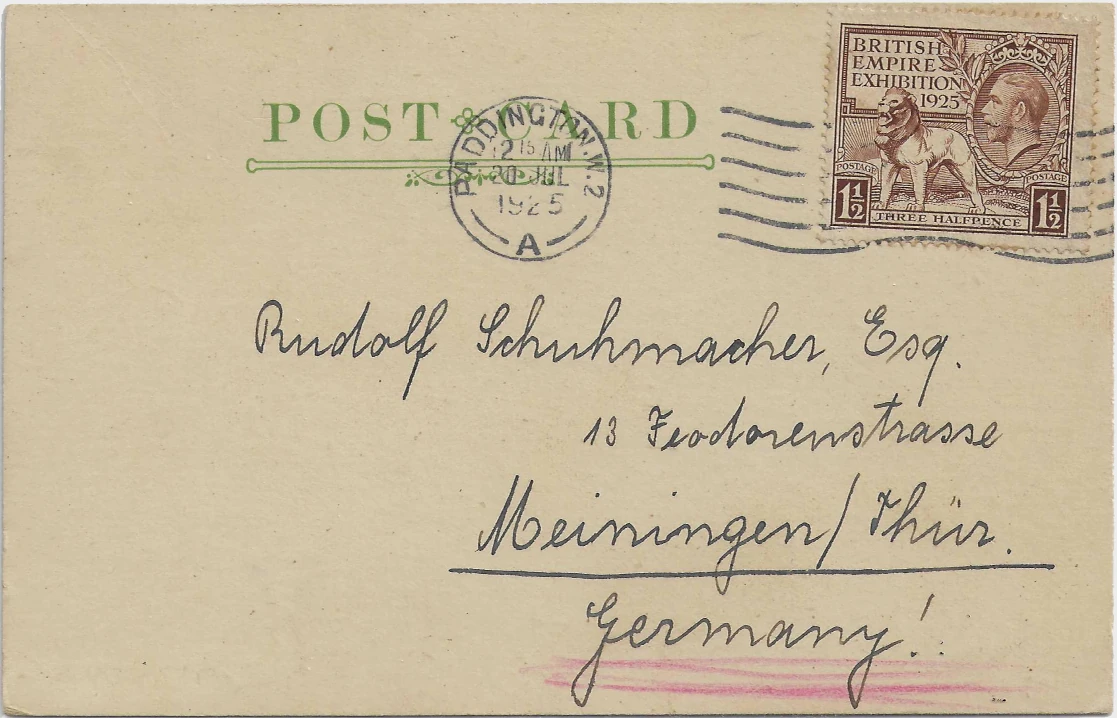 POST CARD
PADDINGTON. W.2
12 15 AM
20 JUL
1925
A
BRITISH
EMPIRE
EXHIBITION
1925
POSTAGE POSTAGE
1½ THREE HALFPENCE 1½
Rudolf Schuhmacher, Esq.
13 Feodorenstrasse
Meiningen/Thür.
Germany!